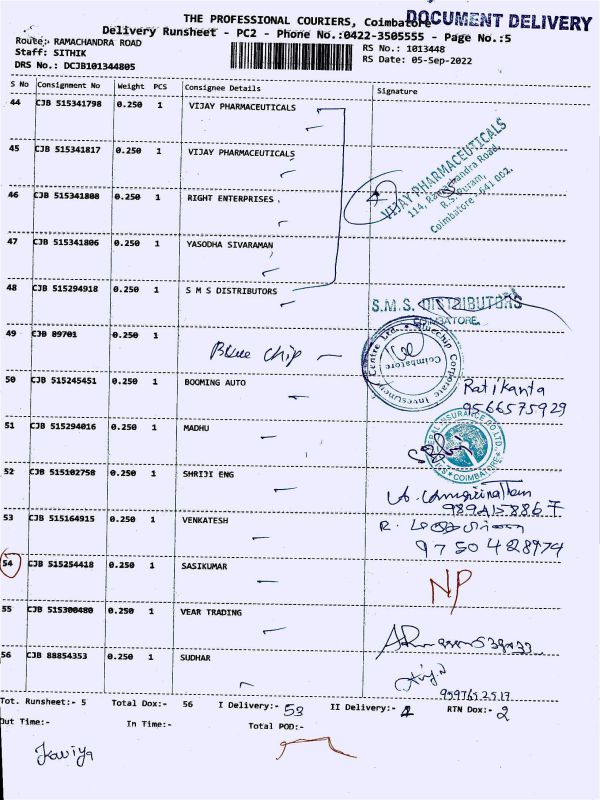 THE PROFESSIONAL COURIERS, Coimbatore
DOCUMENT DELIVERY
Delivery Runsheet - PC2 - Phone No.:0422-3505555 - Page No.:5
Route:- RAMACHANDRA ROAD
RS No.: 1013448
Staff: SITHIK
RS Date: 05-Sep-2022
DRS No.: DCJB101344805
S No Consignment No Weight PCS Consignee Details Signature
44 CJB 515341798 0.250 1 VIJAY PHARMACEUTICALS
45 CJB 515341817 0.250 1 VIJAY PHARMACEUTICALS
VIJAY PHARMACEUTICALS
114, Ramachandra Road,
R.S. Puram,
Coimbatore - 641 002.
46 CJB 515341808 0.250 1 RIGHT ENTERPRISES.
47 CJB 515341806 0.250 1 YASODHA SIVARAMAN
48 CJB 515294918 0.250 1 S M S DISTRIBUTORS
S.M.S. DISTRIBUTORS
COIMBATORE.
49 CJB 89701 0.250 1
Blue Chip
Bluechip Corporate Investment Centre Ltd.
Coimbatore
50 CJB 515245451 0.250 1 BOOMING AUTO
Ratikanta
9566575929
51 CJB 515294016 0.250 1 MADHU
INSURANCE CO LTD.
COIMBATORE
52 CJB 515102758 0.250 1 SHRIJI ENG
53 CJB 515164915 0.250 1 VENKATESH
R.
9750428974
54 CJB 515254418 0.250 1 SASIKUMAR
NP
55 CJB 515300480 0.250 1 VEAR TRADING
56 CJB 88854353 0.250 1 SUDHAR
Tot. Runsheet:- 5 Total Dox:- 56 I Delivery:- 53 II Delivery:- 1 RTN Dox:- 2
Out Time:- In Time:- Total POD:-
Kaviya